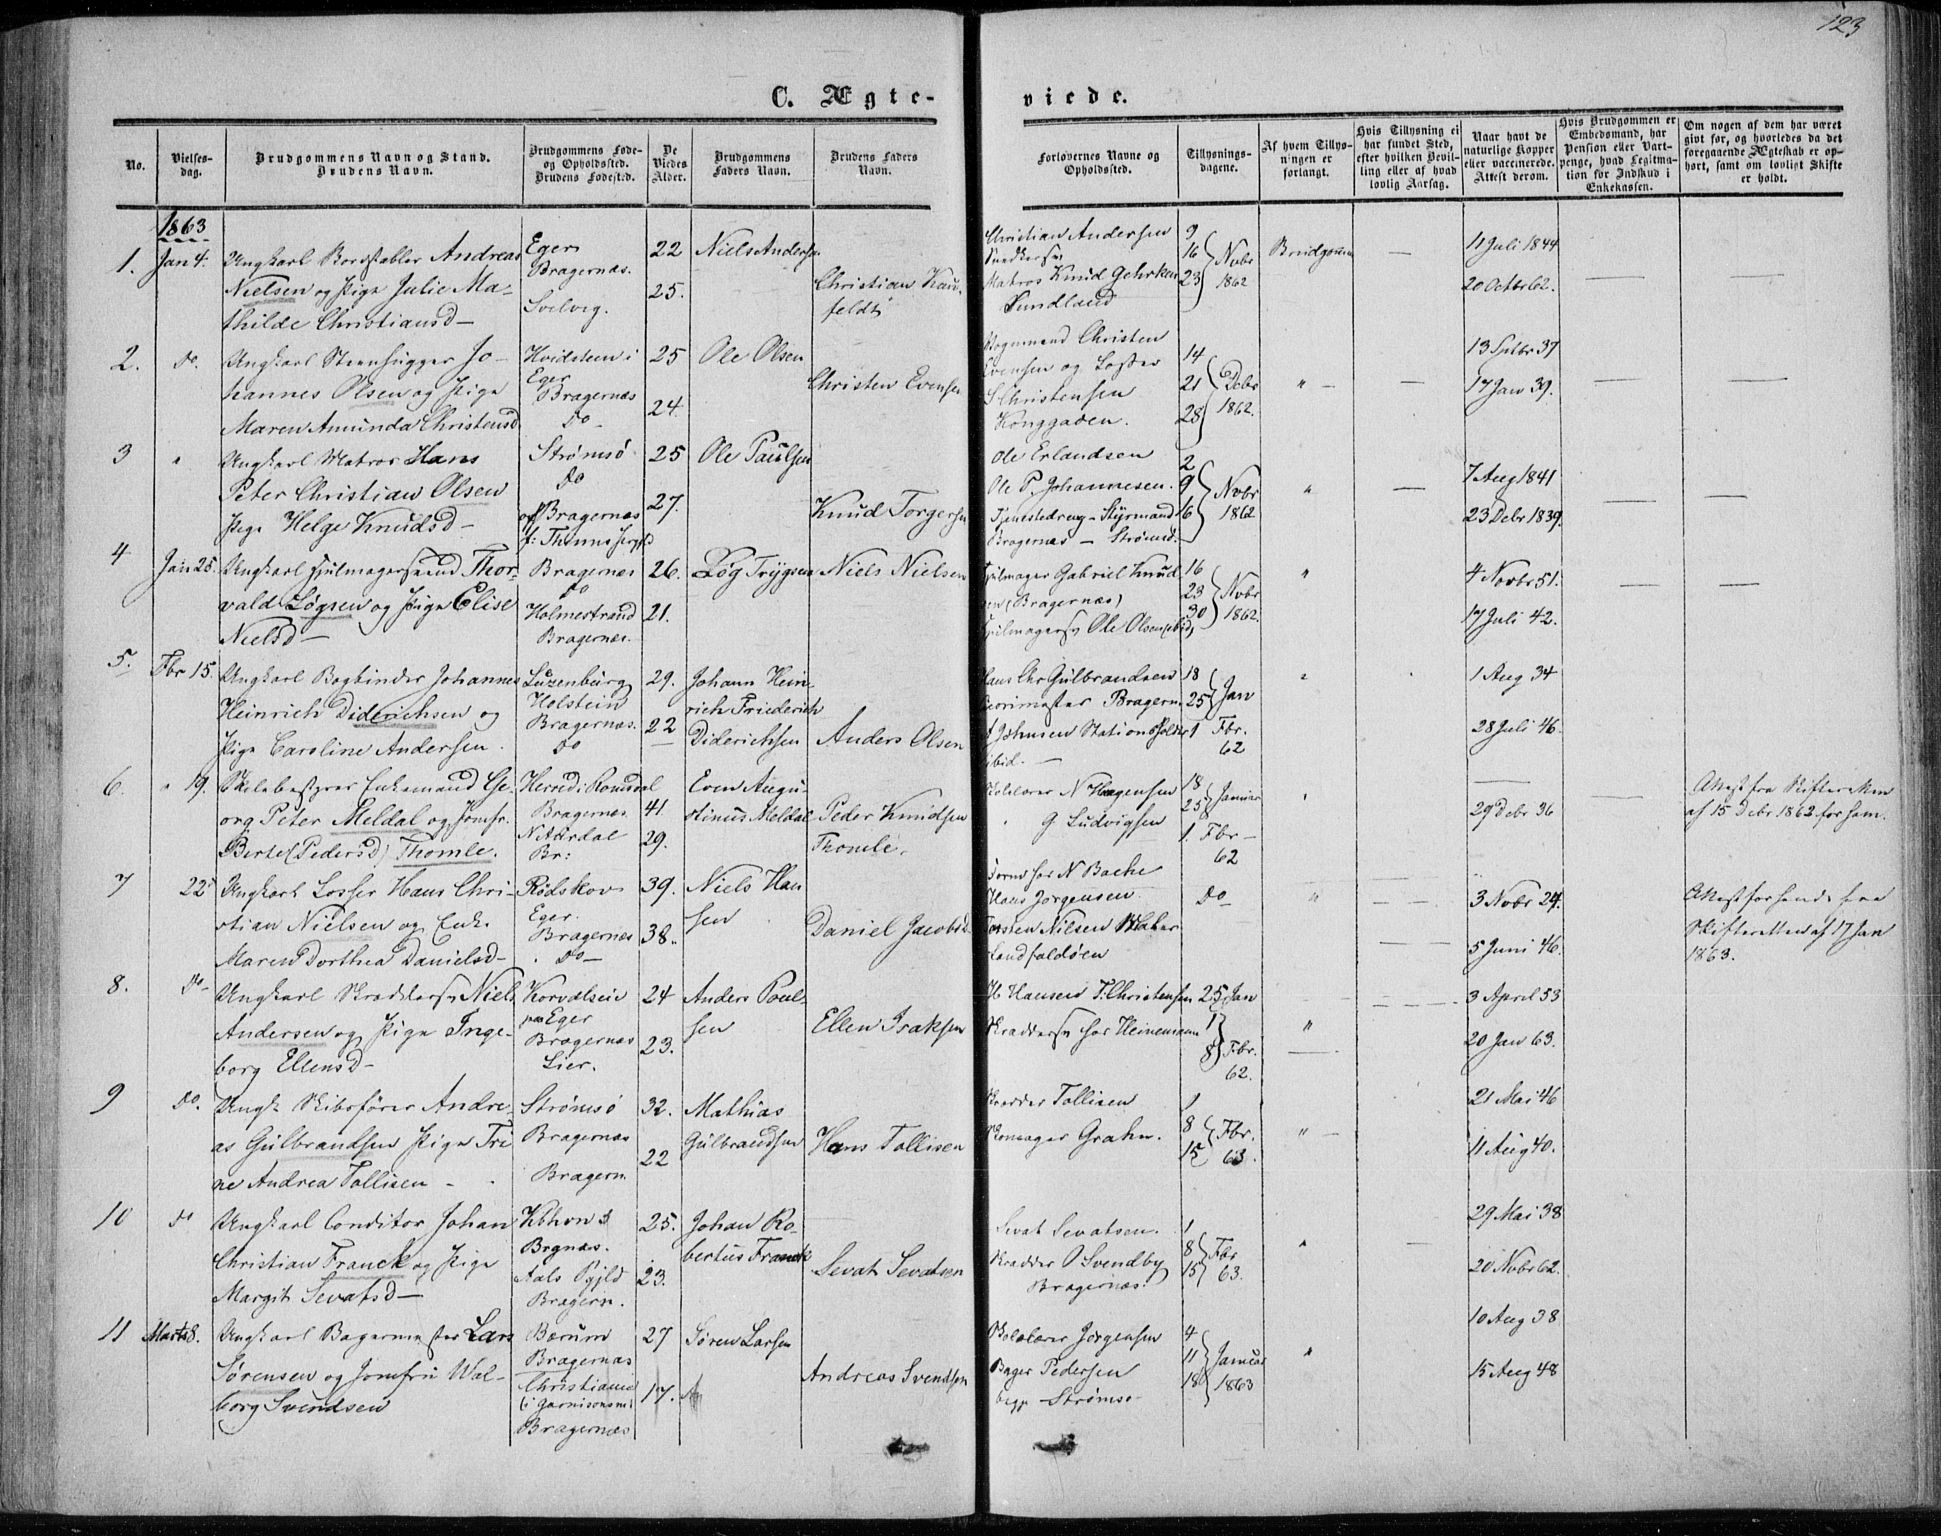 123
C. Ægte-
viede.
No.
Vielses-
dag.
Brudgommens Navn og Stand.
Brudens Navn.
Brudgommens Føde-
og Opholdssted.
Brudens Fødested.
De
Viedes
Alder.
Brudgommens
Faders Navn.
Brudens Faders
Navn.
Forlovernes Navne og
Opholdssted.
Tillysnings-
dagene.
Af hvem Tillys-
ningen er
forlangt.
Hvis Tillysning ei
har fundet Sted,
efter hvilken Bevil-
ling eller af hvad
lovlig Aarsag.
Naar havt de
naturlige Kopper
eller vaccinerede.
Attest derom.
Hvis Brudgommen er
Embedsmand, har
Pension eller Vart-
penge, hvad Legitima-
tion for Indskud i
Enkekassen.
Om nogen af dem har været
givt før, og hvorledes da det
foregaaende Ægteskab er op-
hørt, samt om lovligt Skifte
er holdt.
1863
1. Jan 4. Ungkarl Bordstabler Andreas
Nielsen og Pige Julie Ma-
thilde Christiansd-
Eger
Bragernæs.
Svelvig.
22
25.
Niels Andersen
Christian Kau-
feldt
Christian Andersen
Matros Knud Gehrken
Sundland
9
16
23
Novbr
1862
Brudgommen
11 Juli 1844
20 Octbr 62.
2. Do. Ungkarl Steenhugger Jo-
hannes Olsen og Pige
Maren Amunda Christensd
Hvidsteen i
Eger
Bragernæs
Do
25
24.
Ole Olsen
Christen Evensen
Christen
Evensen og Losser
S Christensen
Konggaden.
14
21
28
Debr
1862.
"
13 Sptbr 37
17 Jan 39.
3 " Ungkarl Matros Hans
Peter Christian Olsen
Pige Helge Knudsd-
Strømsø
Do
Bragernæs
25
27.
Ole Paulsen
Knud Torgersen
Ole Erlandsen
Ole P. Johannesen.
Tjenestedreng - Styrmand
Bragernæs - Strømsø.
2
9
16
Novbr
1862
"
7 Aug 1841
23 Debr 1839.
4 Jan 25. Ungkarl Hjulmagersvend Thor-
vald Løgsen og Pige Elise
Nielsd-
Bragernæs
Do
Holmestrand
Bragernæs.
26.
21.
Løg Trygsen
Niels Nielsen
Hjulmager Gabriel Knud
sen (Bragernæs)
Ole Olsen ibid
16
23
30
Novbr
1862.
"
4 Novbr 51.
17 Juli 42.
5. Fbr 15. Ungkarl Bogbinder Johannes
Heinrich Diderichsen og
Pige Caroline Andersen.
Luzenburg
Holstein
Bragernæs.
Do
29.
22
Johann Hein-
rich Friederich
Diderichsen
Anders Olsen
Hans Chr Gulbrandsen
Bragern.
Johnsen Stationsholder
ibid.
18
25
1
Jan
Fbr.
62
"
1 Aug 34
28 Juli 46.
6. " 19. Skolebestyrer Enkemand Ge-
org Peter Meldal og Jomfr.
Berte (Pedersd) Thomle.
Herred i Romsdal
Bragernæs.
N Aurdal
Br:
41
29.
Even Augu-
stinus Meldal
Peder Knudsen
Thomle.
Skolelærer N Hagensen
" G Ludvigsen
18
25
1.
Januar
Fbr-
62
"
29 Debr 36
Attest fra Skifteretten
af 15 Debr 1862 for ham.
7 22d Ungkarl Losser Hans Chri-
stian Nielsen og Enke
Maren Dorthea Danielsd-
Rødskov
Eger.
Bragernæs
Do-
39.
38.
Niels Han
sen
Daniel Jacobsd.
N Bache
Hans Jørgensen
Torsten Nilsen
Landfaldøen
Do
"
3 Novbr 24.
5 Juni 46.
Attest for hende fra
Skifteretten af 17 Jan
1863.
8. Do- Ungkarl Skræddersv. Niels
Andersen og Pige Inge-
borg Ellensd-
paa Eger
Bragernæs
Lier.
24
23.
Anders Poul-
sen
Ellen Isaksen
H Hansen T. Christensen
Skræddersv hos Heinemann
25 Jan
1
8
Fbr.
62.
"
3 April 53
20 Jan 63.
9 Do. Ungk Skibsfører Andre-
as Gulbrandsen Pige Tri
ne Andrea Tollisen -
Strømsø
Bragernæs
Bragern.
32.
22
Mathias
Gulbrandsen
Hans Tollisen
Skrædder Tollisen
Skomager Grahn.
1
8
15
Fbr.
63.
"
21 Mai 46
11 Aug 40.
10 Do Ungkarl Conditor Johan
Christian Franck og Pige
Margit Sevatsd-
Kbhvn
Brgnæs.
Aals Pgjld
Bragern.
25.
23.
Johan Ro-
bertus Franck
Sevat Sevatsen
Sevat Sevatsen.
Skrædder O Svendby
Bragernæs.
1
8
15
Fbr
63.
"
29 Mai 38
20 Novbr 62.
11 Marts 8. Ungkarl Bagermester Lars
Sørensen og Jomfru Wal-
borg Svendsen
Bærum
Bragernæs
Christiania
(i Garnisonsm)
Bragernæs
27
17.
Søren Larsen
Andreas Svendsen
Skolelærer Jørgensen
Bager Pedersen
begge Strømsø
4
11
18
Januar
1863
"
10 Aug 38
15 Aug 48